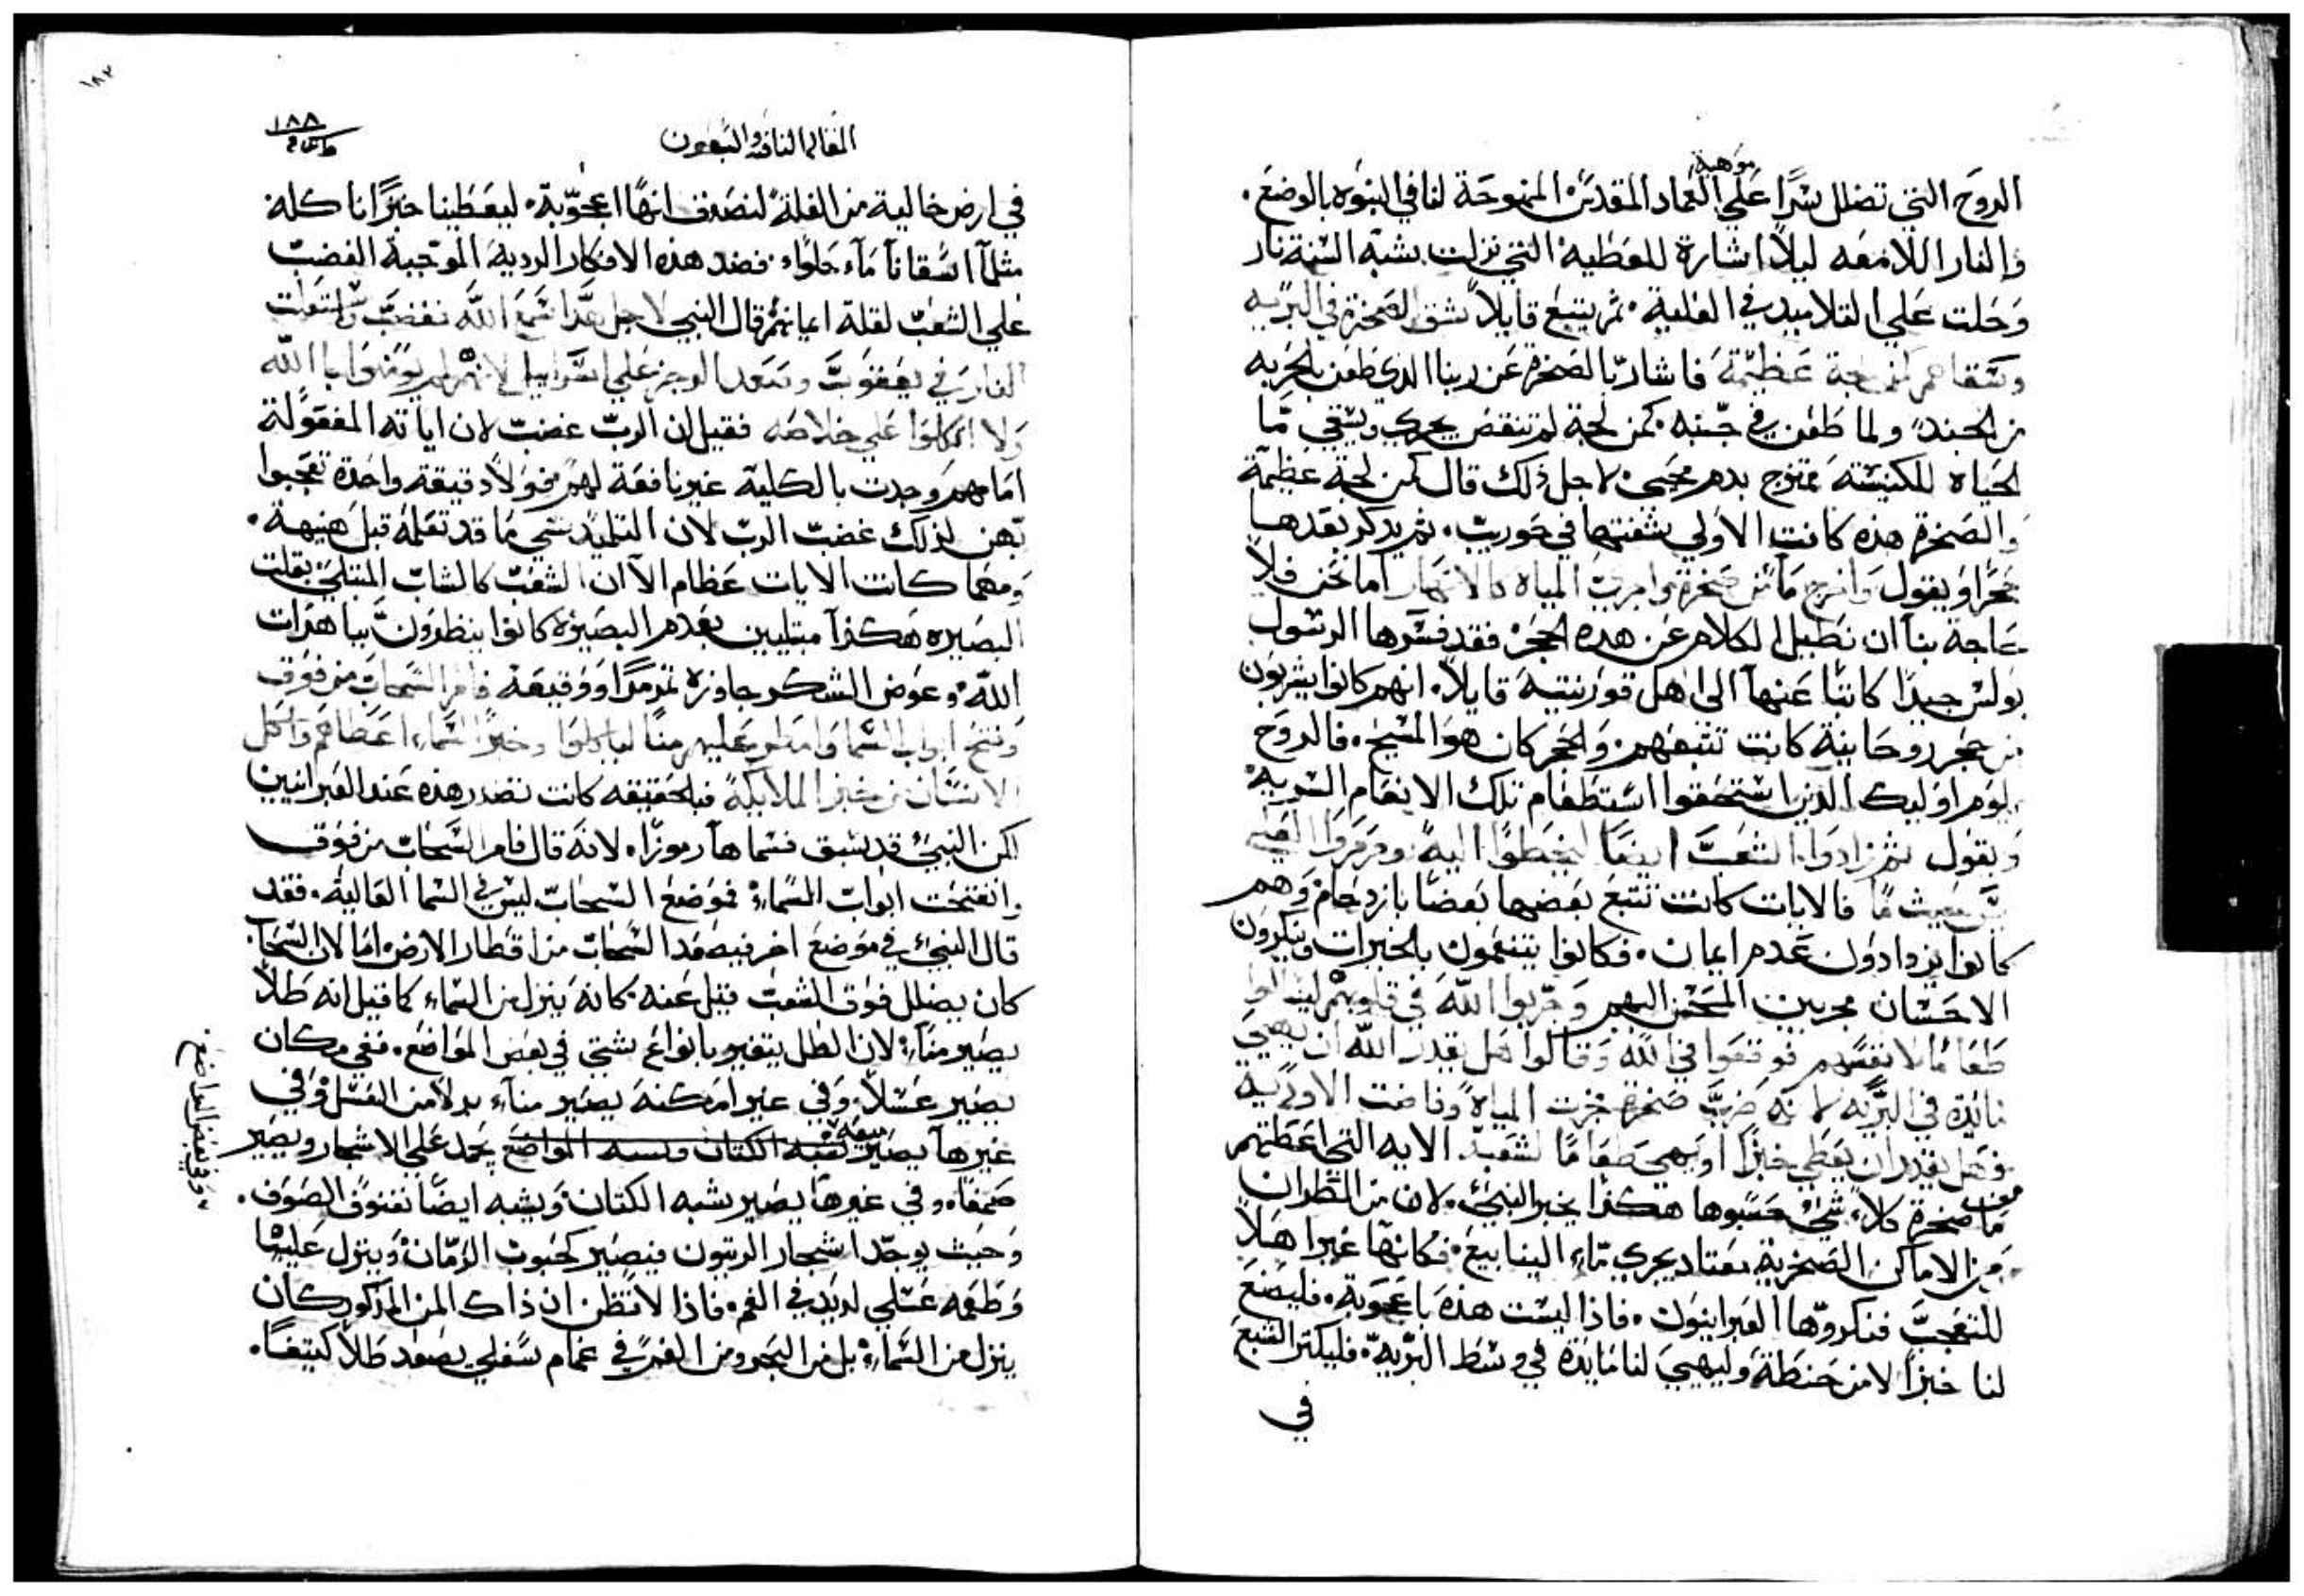 موهبة
الروح التي تضلل سرًا علي العماد المقدس الممنوحة لنا في البنوه بالوضع.
والنار اللامعه ليلاً اشارة للعطية التي نزلت بشبه السنة نار
وحلت علي التلاميد في العلية. ثم يتبع قايلاً شق الصخرة في البريه
وسقاهم كمن لجة عظيمة فاشار بالصخرة عن ربنا الدي طعن بالحربه
من الجند، ولما طعن في جنبه كمن لجة لم تنقص يجري ويسقي ما
الحياه للكنيسة ممتزج بدم محيي. لاجل ذلك قال كمن لجة عظيمة
والصخرة هذه كانت الاولي شقتها في حوريب. ثم يدكر بعدها
حجرًا ويقول واخرج ما من صخرة واجري المياه كالانهار اما نحن فلا
حاجة بنا ان نطيل الكلام عن هده الحجر فقد فسرها الرسول
بولس جيدًا كاتبًا عنها الى اهل قورنتيه قايلاً. انهم كانوا يشربون
من حجر روحانية كانت تتبعهم. والحجر كان هو المسيح. فالروح
يلوم اوليك الدين استحقوا استطعام تلك الانعام السريه
ويقول ثم زادوا الشعب ايضًا ليخطوا اليه ومرمروا العلي
فالايات كانت تتبع بعضها بعضًا بازدحام وهم
كانوا يزدادون عدم ايمان. فكانوا يتنعمون بالخيرات وينكرون
الاحسان مجربين المحسن اليهم وجربوا الله في قلوبهم ليسالوا
طعامًا لانفسهم فوقعوا في الله وقالوا هل يقدر الله ان يهيى
مايدة في البريه لانه ضرب صخرة فجرت المياه وفاضت الاودية
فهل يقدر ان يعطي خبزًا او يهيى طعامًا لشعبه الايه التي اعطتهم
ما من صخرة كلا شي حسبوها هكذا يخبر النبي. لان من القطران
ومن الاماكن الصخرية يعتاد يجري ماء الينابيع. فكانها غير اهلاً
للتعجب فنكروها العبرانيون. فاذا ليست هذه باعجوبة. فليصنع
لنا خبزًا لا من حنطة وليهيي لنا مايدة في وسط البرية. فليكثر الشبع
في
١٨٢
١٨٨
المقالة الثانية والسبعون
في ارض خالية من الغلة لنصدق انها اعجوبة. ليعطينا خبزًا ناكله
مثلما اسقانا ماء حلواء. فضد هذه الافكار الردية الموجبة الغضب
علي الشعب لقلة ايمانهم قال النبي لاجل هدا سمع الله فغضب واشتعلت
النار في يعقوب وصعد الرجز علي اسراييل لانهم لم يومنوا بالله
ولا اتكلوا علي خلاصه فقيل ان الرب غضب لان اياته المفعولة
امامهم وجدت بالكلية غير نافعة لهم فولا دقيقة واحدة تعجبوا
بهن لذلك غضب الرب لان التلميد نسي ما قد تعلمه قبل هنيهة.
ومهما كانت الايات عظام الا ان الشعب كالشاب المبتلي بقلت
البصيره هكذا مبتليين بعدم البصيرة كانوا ينظرون باهرات
الله. وعوض الشكر جاوزه تمرمرًا ووقيعة فامر السحاب من فوق
وفتح ابواب السما وامطر عليهم منًا لياكلوا وخبز السماء اعطاهم واكل
الانسان من خبز الملايكة فبالحقيقه كانت تصدر هذه عند العبرانيين
لكن النبي قد سبق فسماها رموزًا. لانه قال فامر السحاب من فوق
وانفتحت ابواب السماء. فموضع السحاب ليس في السما العالية. فقد
قال النبي في موضع اخر فيصعد السحاب من اقطار الارض اما لان السحاب
كان يضلل فوق الشعب قيل عنه كانه ينزل من السماء كما قيل انه طلاً
يصير مناء. لان الطل يتغير بانواع شتي في بعض المواضع. ففي مكان
يصير عسلاً، وفي غير امكنة يصير مناء بدلاً من العسل وفي
غيرها يصير يجمد علي الاشجار ويصير
وفي بعض المواضع
صمغًا، وفي غيرها يصير يشبه الكتان ويشبه ايضًا نفنوف الصوف.
وحيث يوجد اشجار الزيتون فيصير كحبوب الرمان وينزل عليها
وطعمه عسلي لديد في الفم. فاذا لا تظن ان ذاك المن المدكور كان
ينزل من السماء بل من البحر ومن الغمر في غمام سفلي يصعد طلاً كتيفًا.